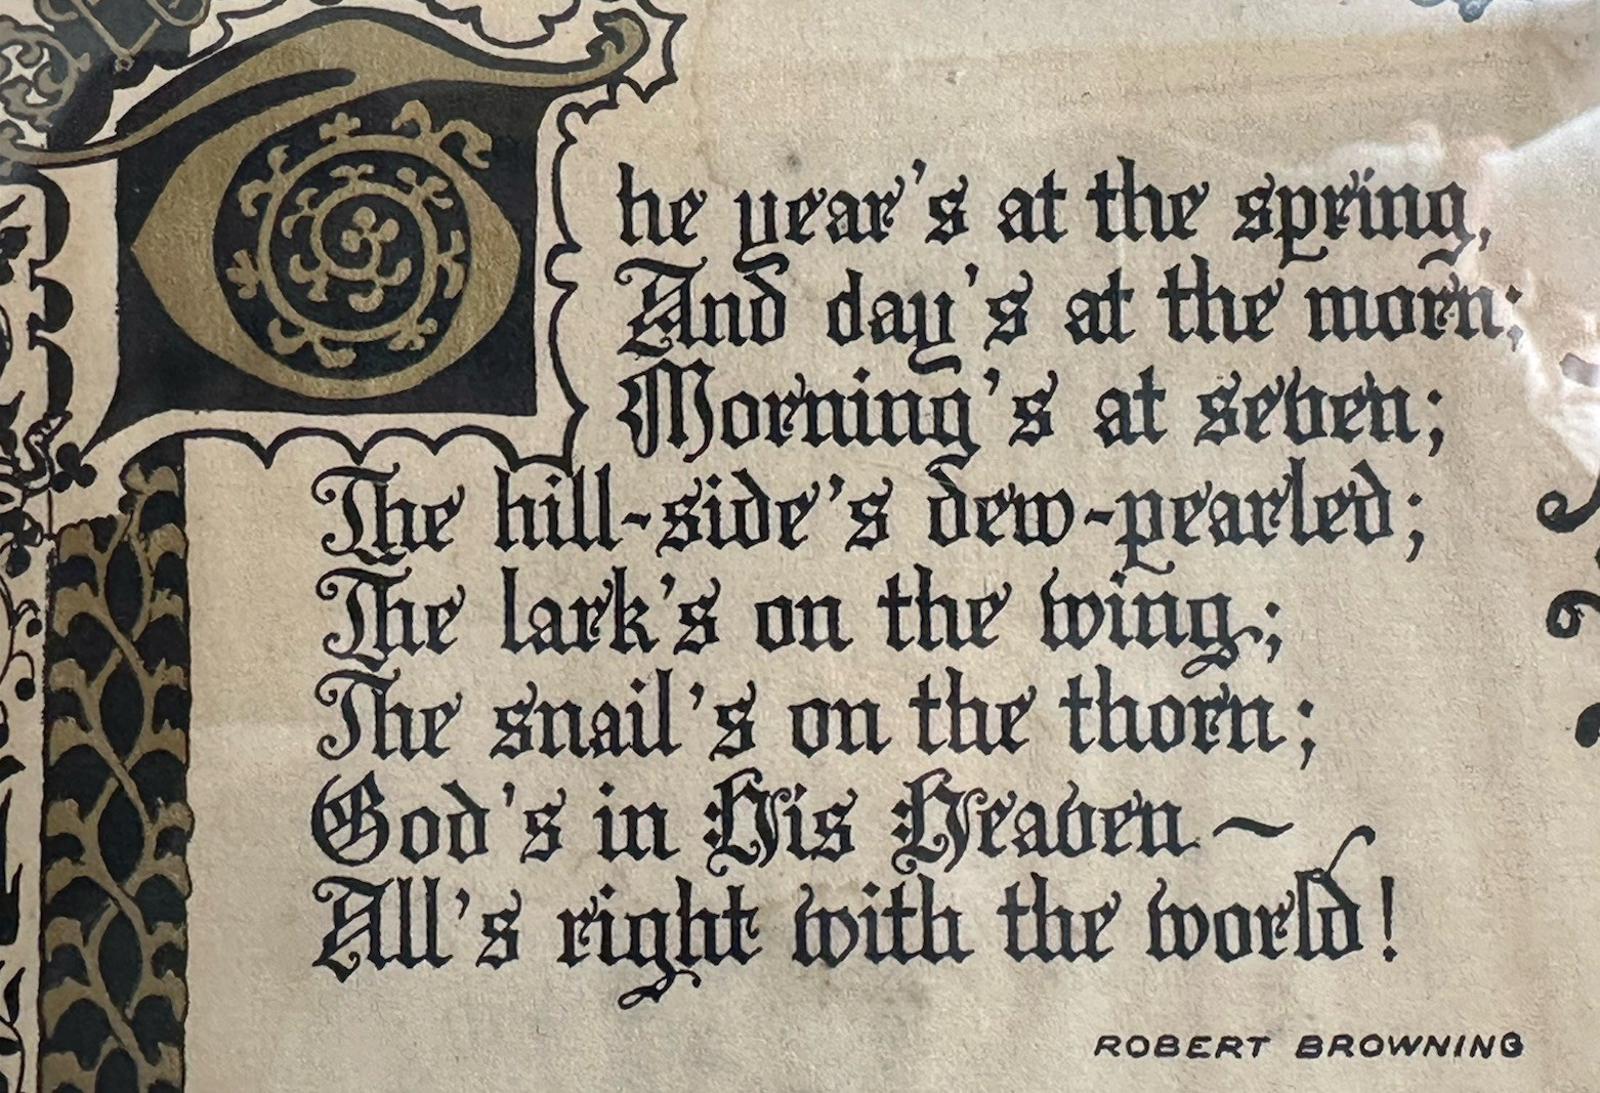 The year's at the spring,
And day's at the morn;
Morning's at seven;
The hill-side's dew-pearled;
The lark's on the wing;
The snail's on the thorn;
God's in His Heaven ~
All's right with the world!
ROBERT BROWNING